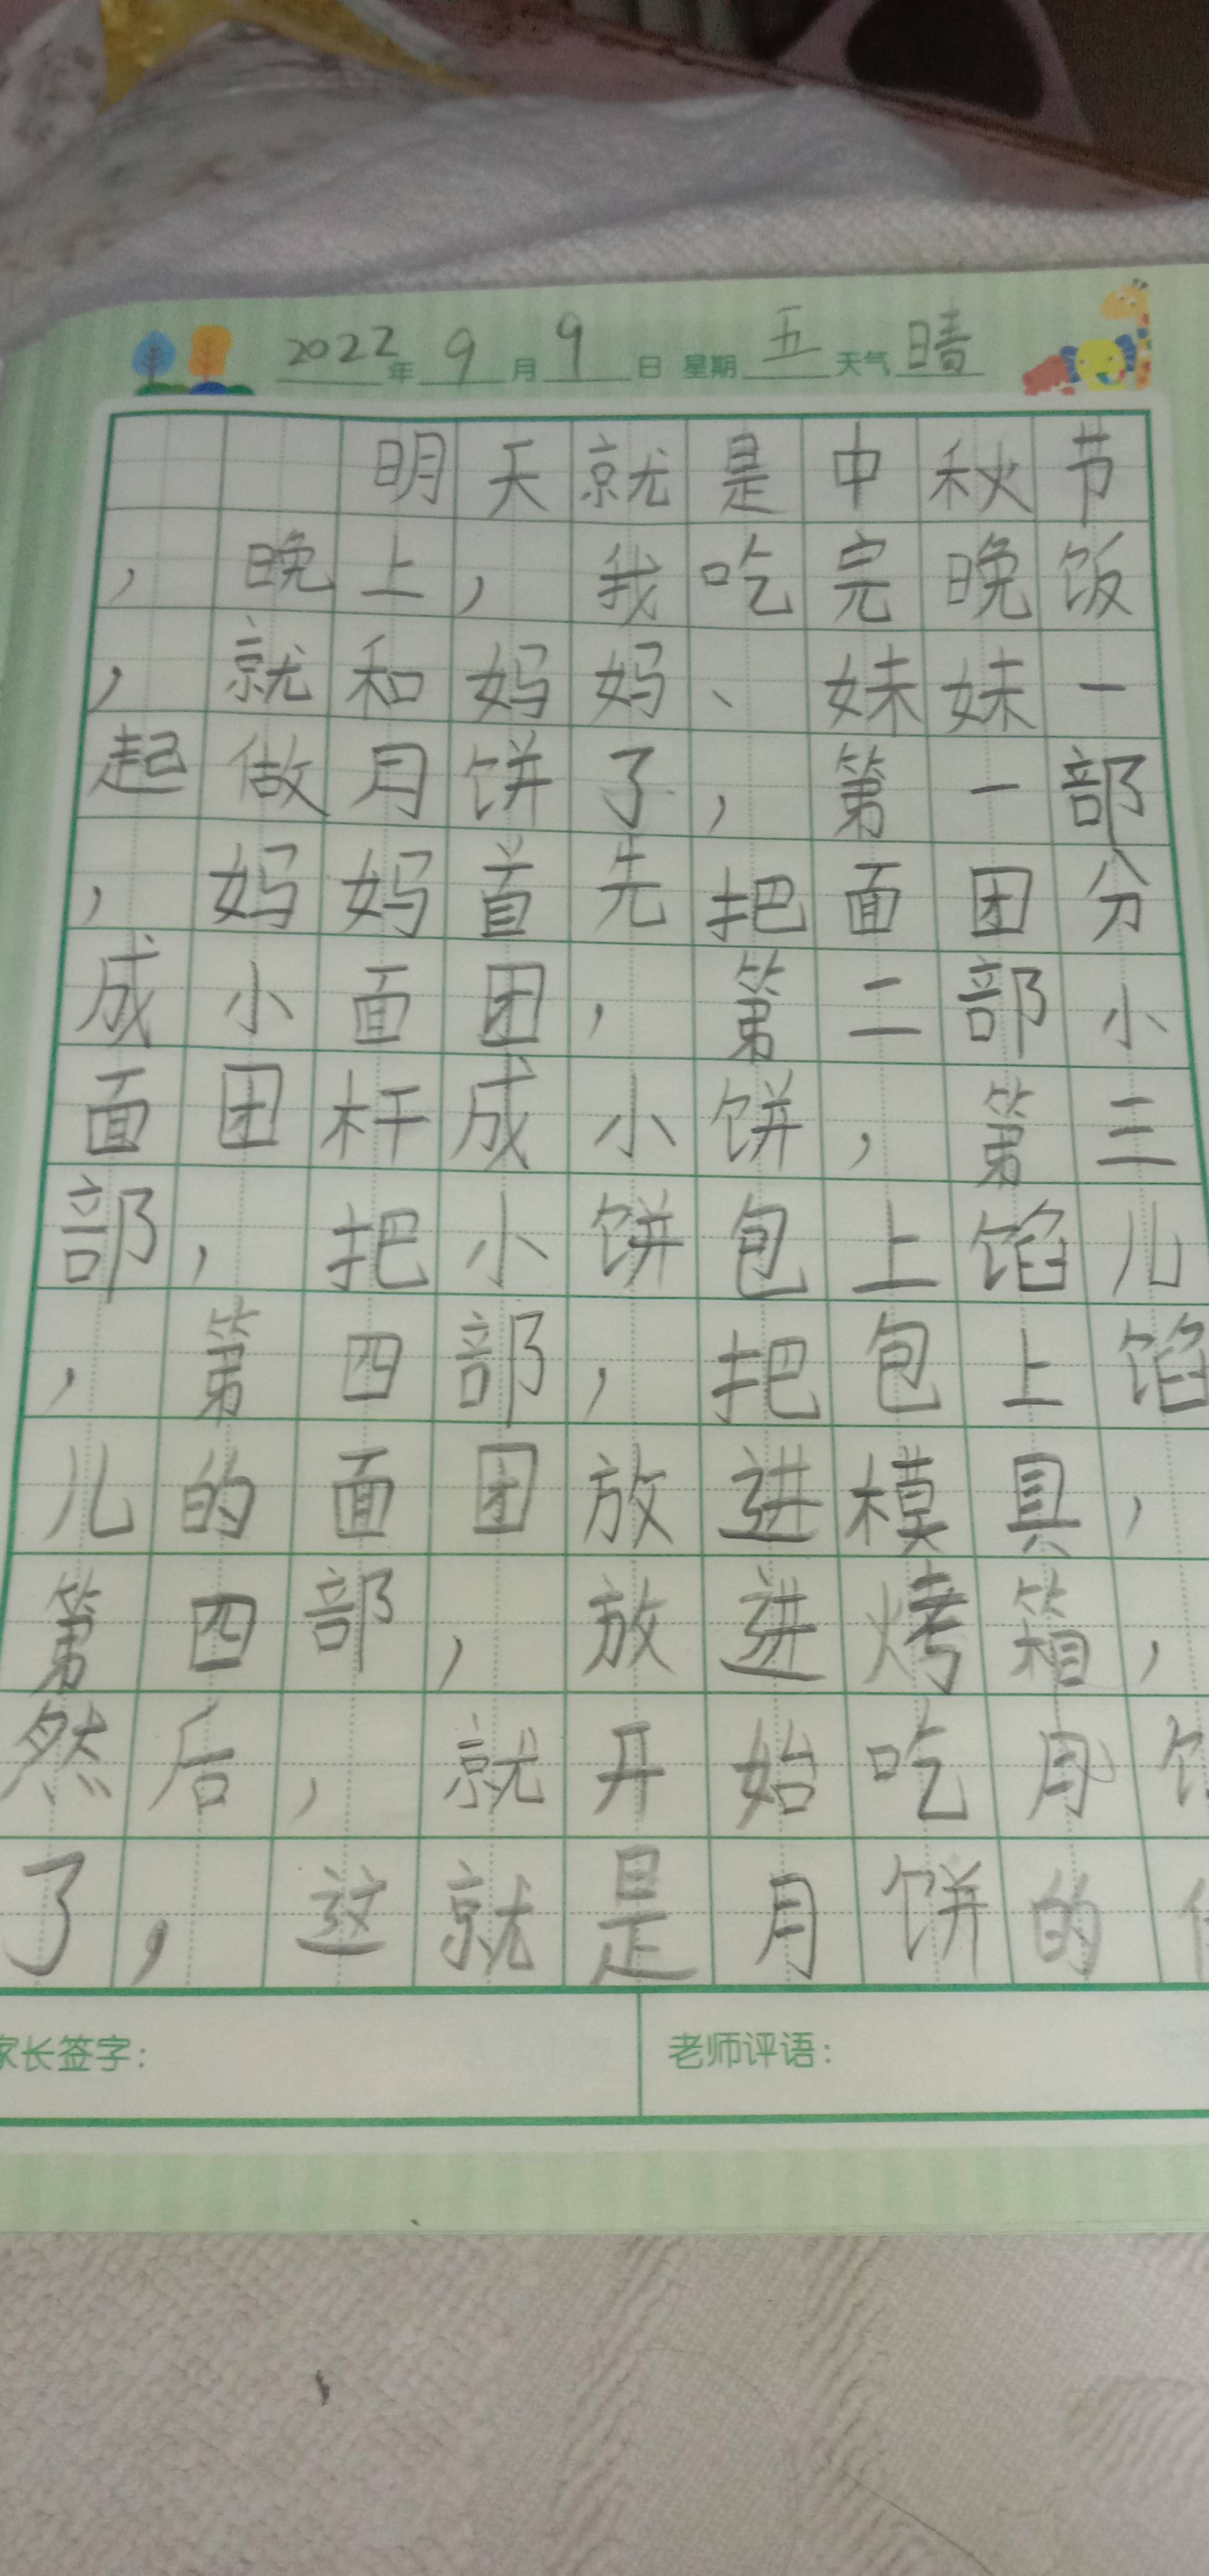 2022年9月9日 星期五 天气晴
明天就是中秋节
，晚上，我吃完晚饭
，就和妈妈、妹妹一
起做月饼了，第一部
，妈妈首先把面团分
成小面团，第二部小
面团杆成小饼，第三
部，把小饼包上馅儿
，第四部，把包上馅
儿的面团放进模具，
第四部，放进烤箱，
然后，就开始吃月
了，这就是月饼的
家长签字：
老师评语：